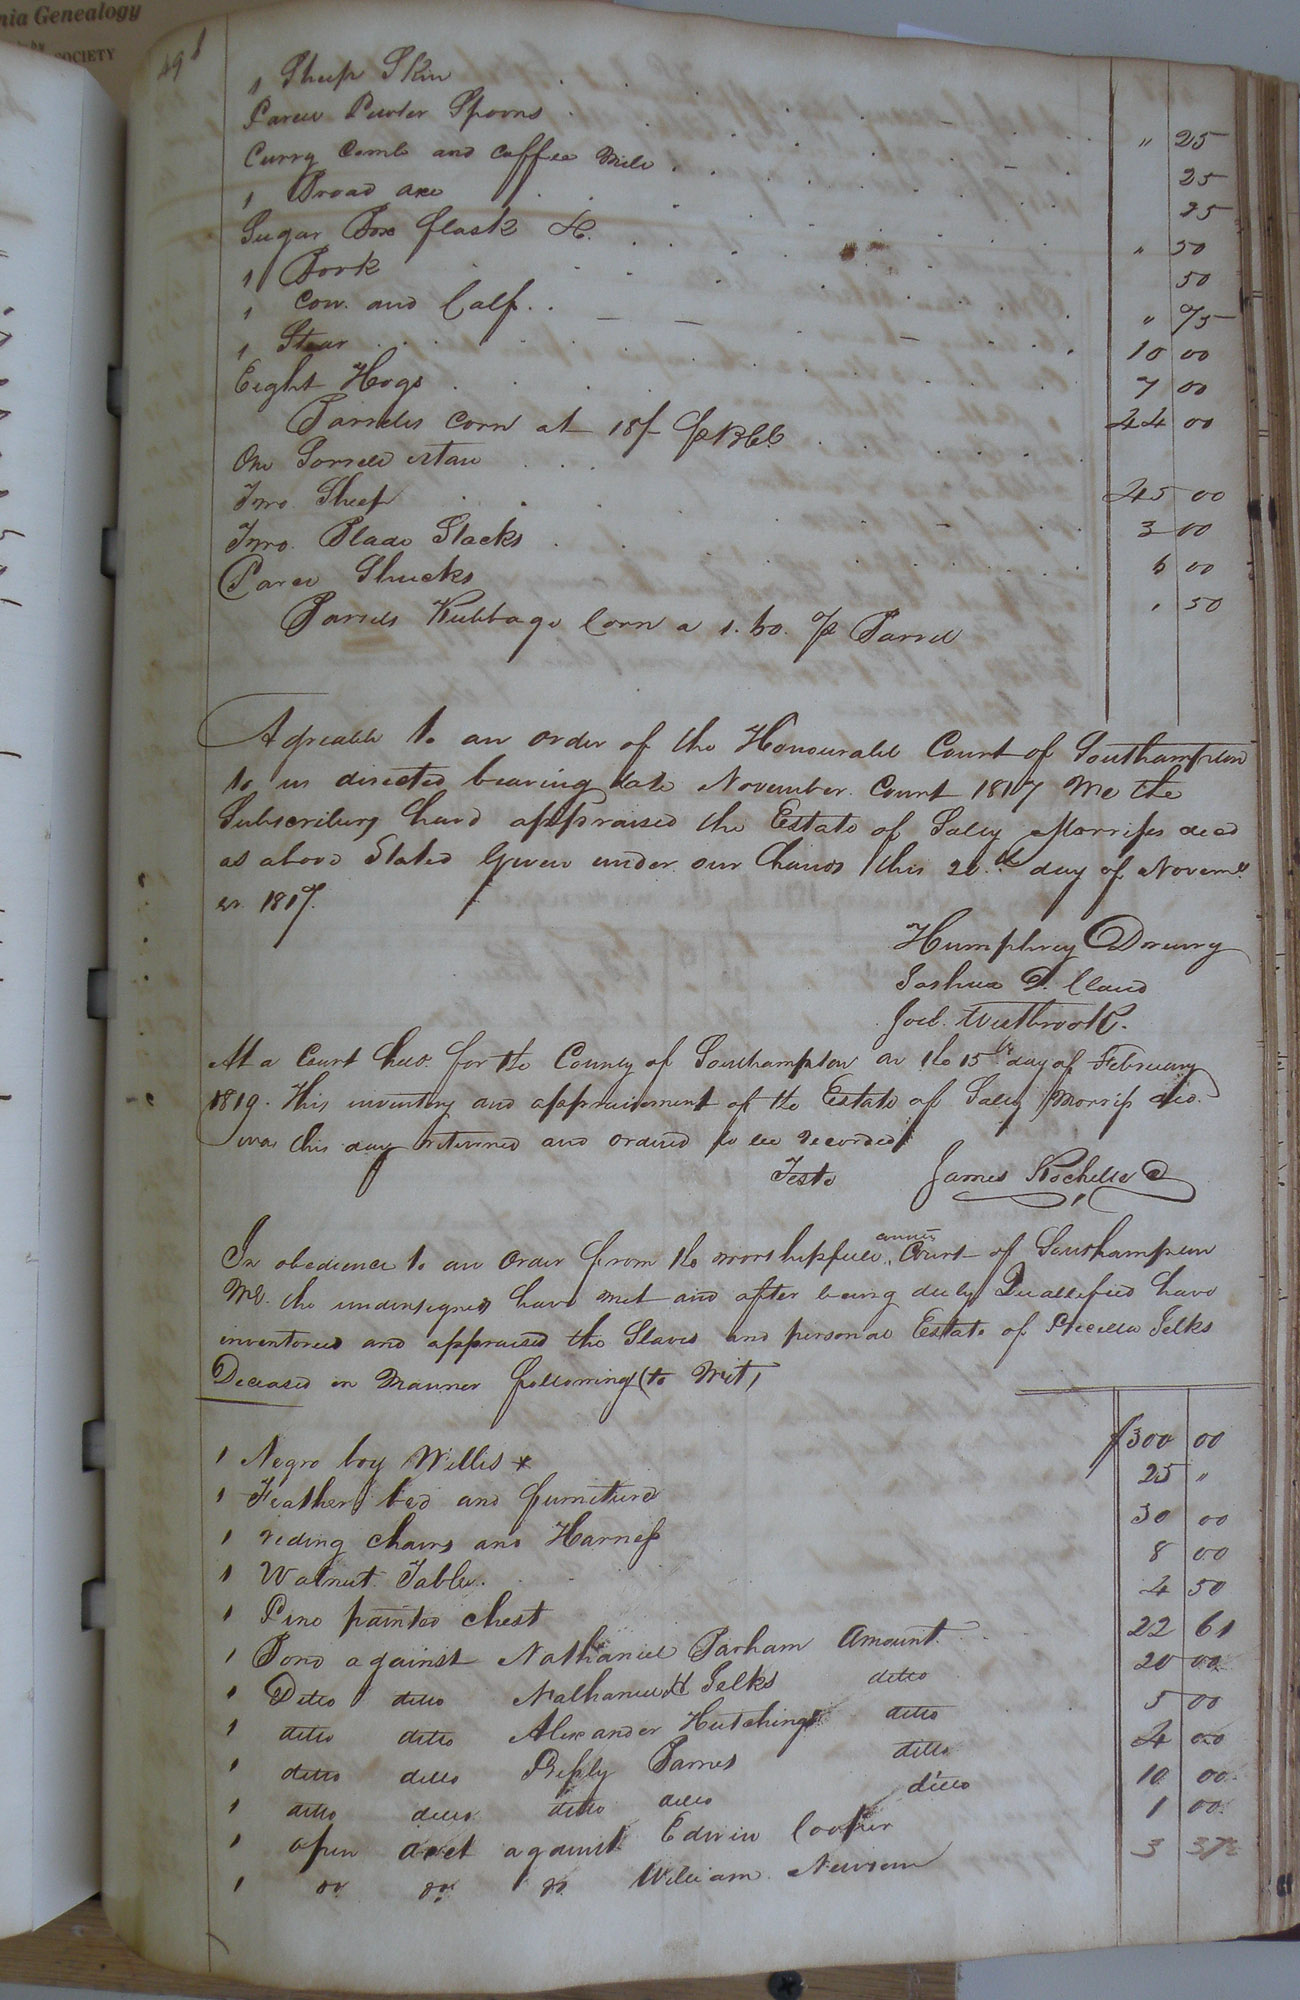 nia Genealogy
SOCIETY
498
1 Sheep Skin
Parcel Pewter Spoons " 25
Curry Comb and Coffee Mill 25
1 Broad axe 25
Sugar Box flask &c. " 50
1 Fork 50
1 Cow and Calf " 75
1 Stear 10 00
Eight Hogs 7 00
Barrels Corn at 18/- pr Bbl 44 00
One Sorrell Mare
Two Sheep 45 00
Two Blade Stacks 3 00
Parcel Shucks 6 00
Barrels Rubbage Corn a 1.50. pr Barrel , 50
Agreable to an order of the Honourable Court of Southampton
to us directed bearing date November Court 1817 We the
Subscribers have appraised the Estate of Salley Morriss decd
as above Stated Given under our hands this 20th day of Novem
er 1817.
Humphrey Drewry
Joshua D. Claud
Joel Westbrook.
At a Court held for the County of Southampton on the 15th day of February
1819. This inventory and appraisement of the Estate of Salley Morriss decd.
was this day returned and ordered to be recorded
Teste James Rochelle C
In obedience to an Order from the worshipfull County Court of Southampton
We the undersigned have met and after being duly Quallified have
inventored and appraised the Slaves and personal Estate of Precilla Jelks
Deceased in Manner following (to Wit)
1 Negro boy Willis * $300 00
1 Feather bed and furniture 25 "
1 riding Chairs and Harness 30 00
1 Walnut Table. 8 00
1 Pine painted Chest 4 50
1 Bond against Nathaniel Barham Amount 22 61
1 Ditto ditto Nathaniel H Jelks ditto 20 00
1 ditto ditto Alexander Hutchings ditto 5 00
1 ditto ditto Reply Barnes ditto 4 00
1 ditto ditto ditto ditto ditto 10 00
1 open acct against Edwin Cooper 1 00
1 do do do William Newsum 3 37½